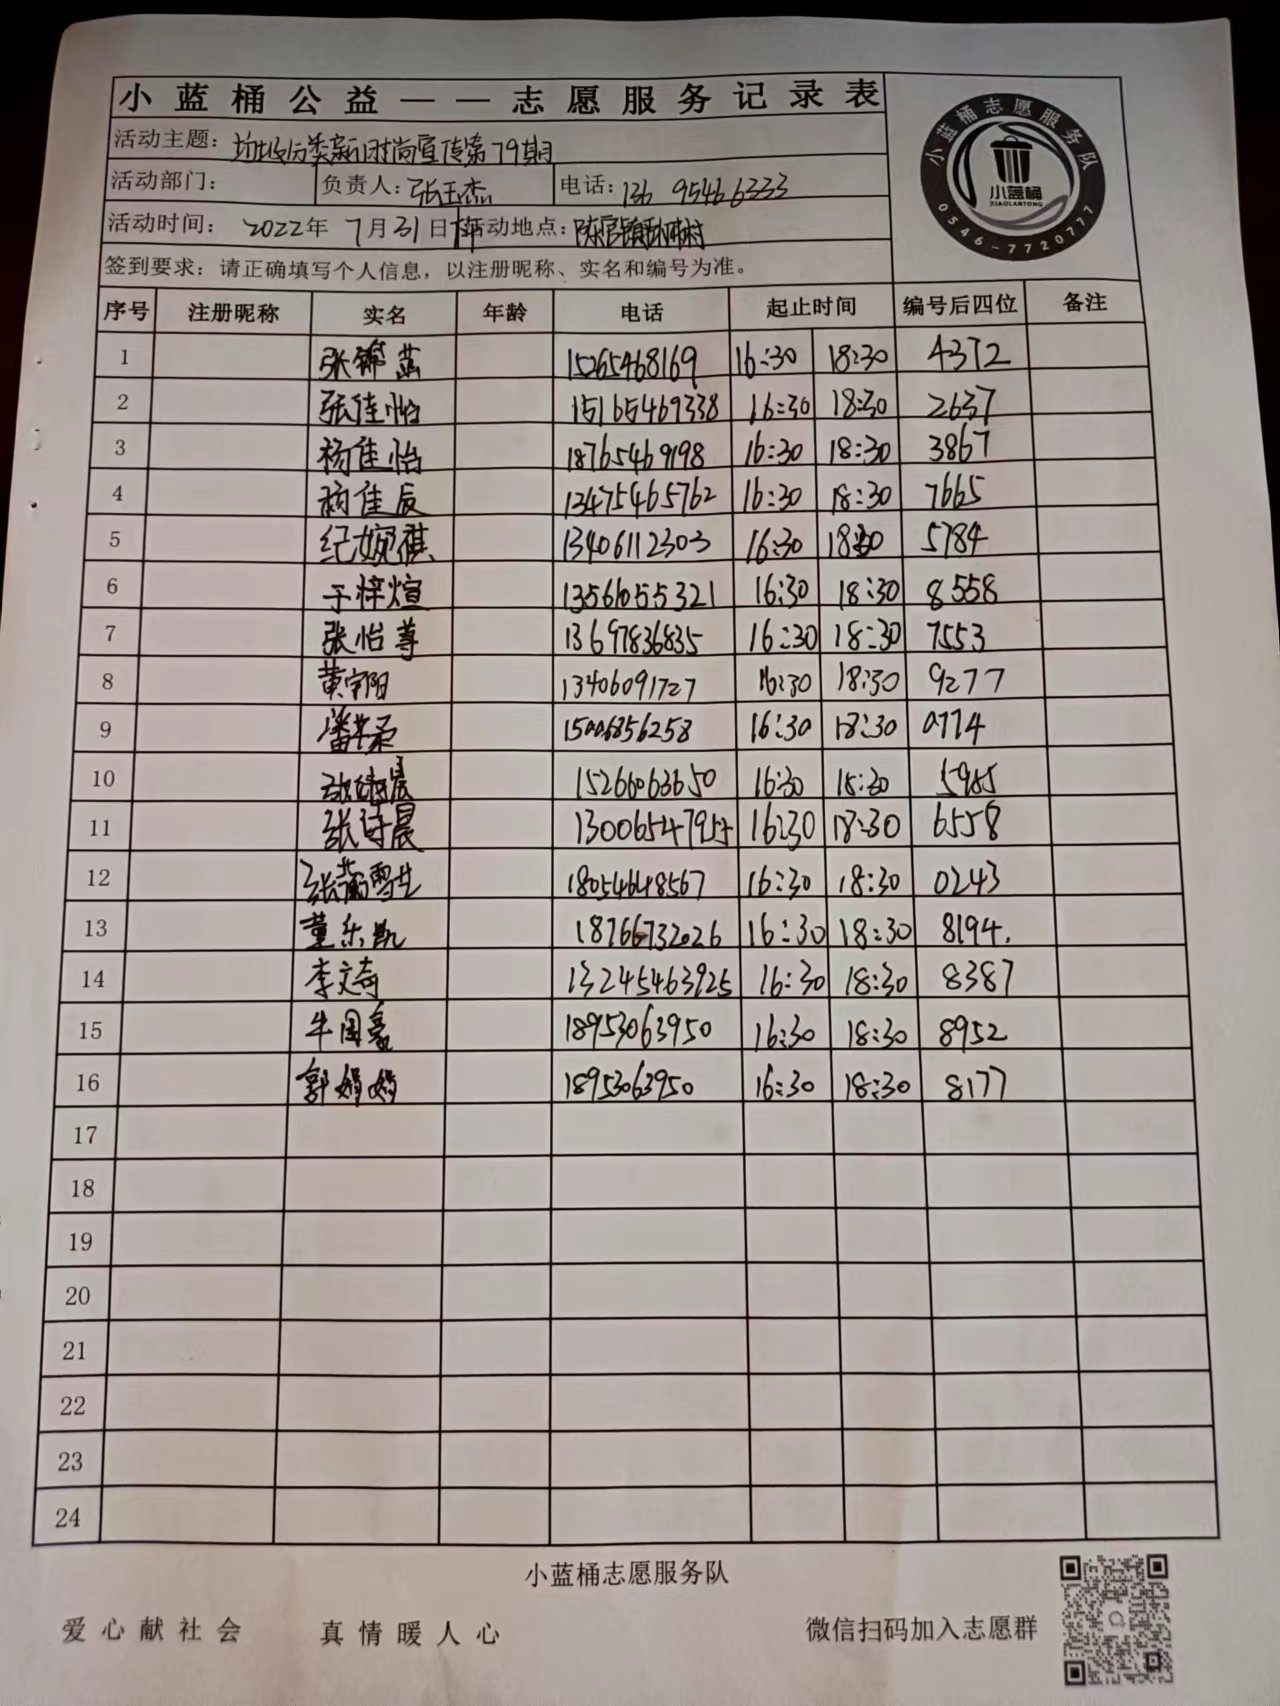 小蓝桶公益——志愿服务记录表
小蓝桶志愿服务队
小蓝桶
XIAOLANTONG
0546-7720777
活动主题：垃圾分类新时尚宣传第79期
活动部门： 负责人：张玉杰 电话：136 9546 6333
活动时间： 2022年 7月31日 活动地点：陈官镇
签到要求：请正确填写个人信息，以注册昵称、实名和编号为准。
序号 注册昵称 实名 年龄 电话 起止时间 编号后四位 备注
1 张锦 15265468169 16:30 18:30 4372
2 张佳怡 15165469338 16:30 18:30 2637
3 杨佳怡 18765469198 16:30 18:30 3867
4 杨佳辰 13475465762 16:30 18:30 7665
5 纪婉祺 13406112303 16:30 18:30 5784
6 于梓煊 13561055321 16:30 18:30 8558
7 张怡尊 13697836835 16:30 18:30 7553
8 黄宇阳 13406091727 16:30 18:30 9277
9 潘 15006856258 16:30 18:30 0774
10 张 晨 15266063650 16:30 18:30 5985
11 张诗晨 13006547955 16:30 18:30 6558
12 张 18054648567 16:30 18:30 0243
13 董乐凯 18766732026 16:30 18:30 8194.
14 李文奇 13245463925 16:30 18:30 8387
15 牛国豪 18953063950 16:30 18:30 8952
16 郭娟娟 18953063950 16:30 18:30 8177
17
18
19
20
21
22
23
24
小蓝桶志愿服务队
爱心献社会 真情暖人心 微信扫码加入志愿群